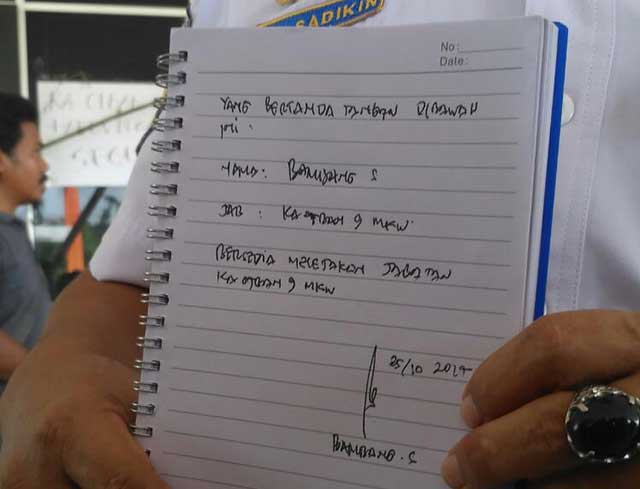 SADIKIN
No:
Date:
YANG BERTANDA TANGAN DIBAWAH
INI.
NAMA: BAMBANG S
JAB : KA OTBAN 9 MKW.
BERSEDIA MELETAKAN JABATAN
KA OTBAN 9 MKW
25/10
BAMBANG. S